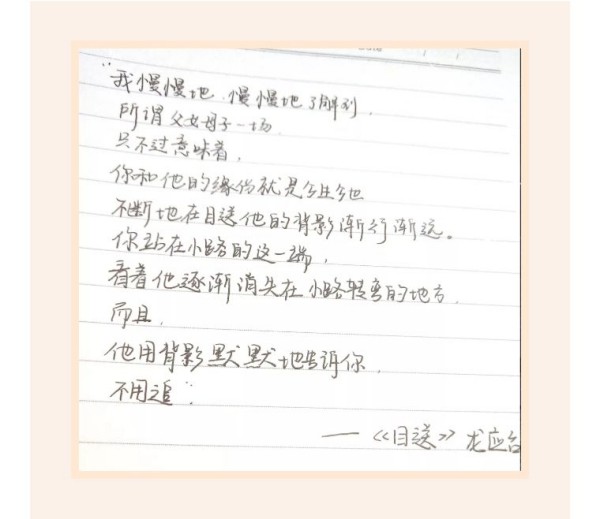 “我慢慢地、慢慢地了解到，
所谓父女母子一场
只不过意味着，
你和他的缘份就是今生今世
不断地在目送他的背影渐行渐远。
你站在小路的这一端，
看着他逐渐消失在小路转弯的地方，
而且，
他用背影默默地告诉你，
不用追”
——《目送》龙应台